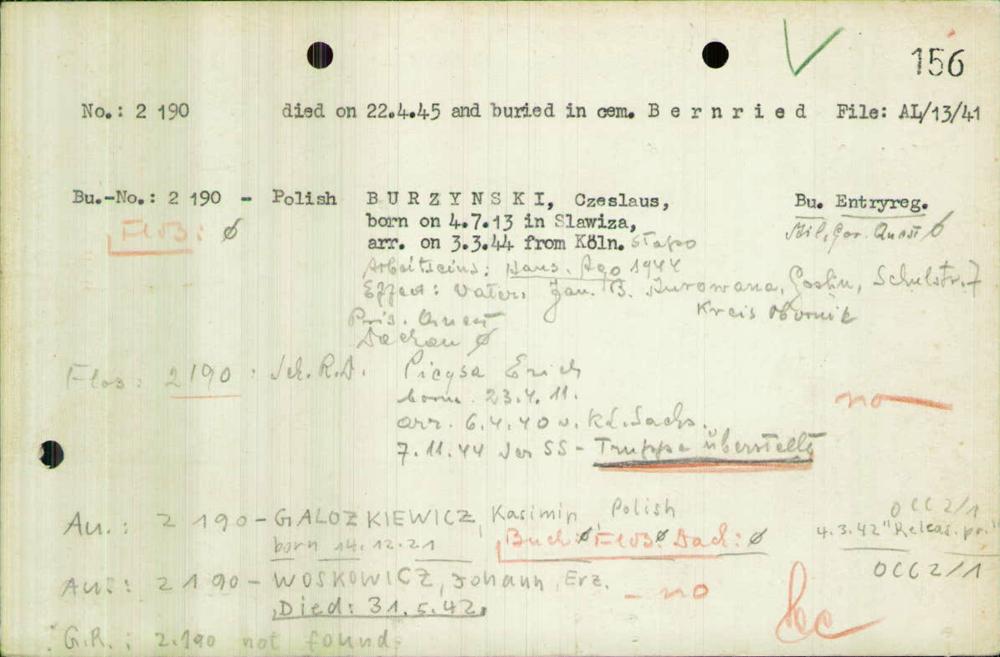 156
No.: 2 190 died on 22.4.45 and buried in cem. B e r n r i e d File: AL/13/41
Bu.-No.: 2 190 - Polish B U R Z Y N S K I, Czeslaus, Bu. Entryreg.
Floß: ø born on 4.7.13 in Slawiza, Mil. Gov. Quest ø
arr. on 3.3.44 from Köln. Stapo
Arbeitseins: 1944
Effekt: Vater, Jan. B. Goslin, Schulstr. 7
Kreis Obornik
Pris. Quest
Dachau ø
Flos: 2190: Sch. R.D. Picysa Erich
born. 23.4.11. no
arr. 6.4.40 v. KL. Sachs.
7.11.44 der SS - Truppe überstellt
Au.: 2 190 - GALOZKIEWICZ, Kasimir, Polish OCC 2/1
born 14.12.21 Buch ø Floß ø Dach: ø 4.3.42 "Releas. pr."
Au.: 2 190 - WOSKOWICZ, Johann, Erz. - no OCC 2/1
Died: 31.5.42.
G.R.: 2.190 not found.